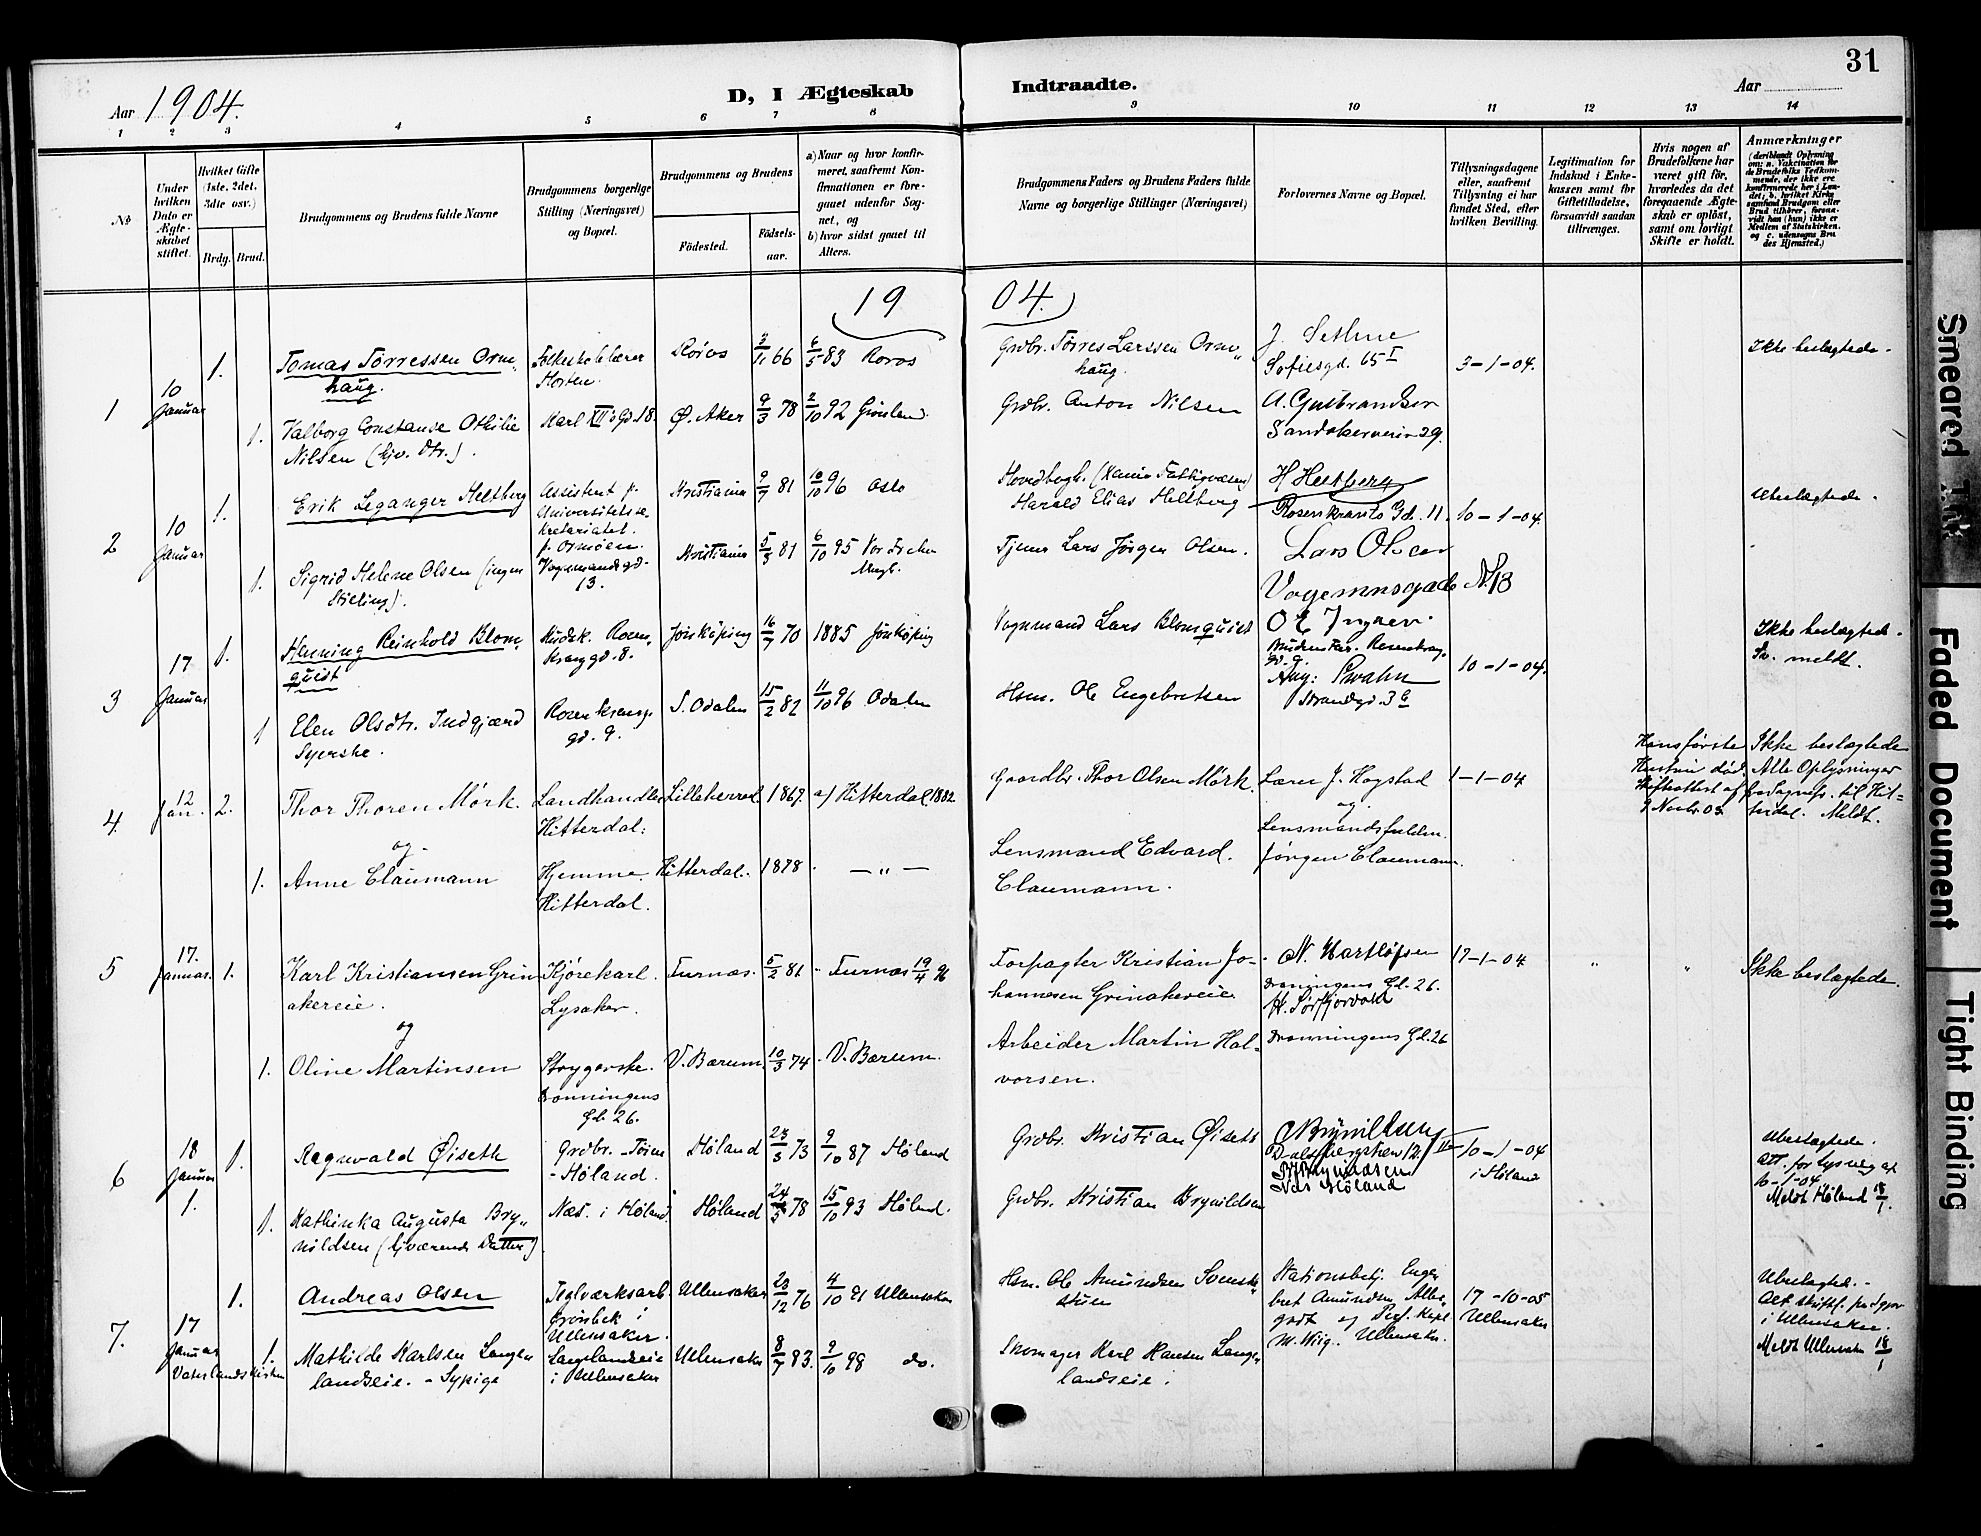 31
Aar 1904.
D, I Ægteskab Indtraadte.
Aar
1 2 3 4 5 6 7 8 9 10 11 12 13 14
No
Under hvilken Dato er Ægteskabet stiftet.
Hvilket Gifte (1ste, 2det, 3dte osv.)
Brdg. Brud.
Brudgommens og Brudens fulde Navne
Brudgommens borgerlige Stilling (Næringsvei) og Bopæl.
Brudgommens og Brudens
Fødested. Fødsels-aar.
a) Naar og hvor konfirmeret, saafremt Konfirmationen er foregaaet udenfor Sognet, og
b) hvor sidst gaaet til Alters.
Brudgommens Faders og Brudens Faders fulde Navne og borgerlige Stillinger (Næringsvei)
Forlovernes Navne og Bopæl.
Tillysningsdagene eller, saafremt Tillysning ei har fundet Sted, efter hvilken Bevilling.
Legitimation for Indskud i Enkekassen samt for Giftetilladelse, forsaavidt saadan tiltrænges.
Hvis nogen af Brudefolkene har været gift før, hvorledes da det foregaaende Ægteskab er opløst, samt om lovligt Skifte er holdt.
Anmærkninger
19 04.
1
10 Januar
1.
Tomas Törressen Ormhaug.
Folkeskolelærer Horten.
Röros
3/11 66
6/5 83 Roros
Grdbr. Törres Larssen Ormhaug.
Sofiesgd. 65 I
3-1-04.
Ikke beslægtede.
1.
Valborg Constanse Othilie
Nilsen (hjv. Dtr.).
Karl XII's Gd. 18.
Ø. Aker
9/3 78
2/10 92 Grönland.
Grdbr. Anton Nilsen
A. Gulbrandsen
Sandakerveien 29.
2
10 Januar
1.
Erik Leganger Heltberg
Assistent p. Universitetssekretariatet.
p. Ormöen.
Kristiania
9/7 81
10/10 96 Oslo
Harald Elias Heltberg
H Heltberg
Rosenkrants Gd. 11.
10-1-04.
Ubeslægtede.
1.
Sigrid Helene Olsen (ingen
Stilling).
Vognmandsgd. 13.
Kristiania
5/3 81
6/10 95 Vor Frelser Mngh.
Tjener Lars Jörgen Olsen.
Lars Olsen
N. 13
3
17 Januar
1.
Henning Reinhold Blomquist
Kudsk. Rosenkransgd. 8.
Jönköping
16/7 70
1885 Jönköping
Vognmand Lars Blomquist
10-1-04.
Ikke beslægtede.
Sv. meldt.
1
Elen Olsdtr. Indgjærd
Syerske.
Rosenkransgd. 9.
S. Odalen
15/2 82
11/10 96 Odalen
Hsm. Ole Engebretsen
Aug: Swahn
Strandgd. 3
4.
12 Jan.
2.
Thor Thorsen Mörk.
og
Landhandler
Hitterdal.
Lilleherred.
1867.
af Hitterdal 1882
Gaardbr. Thor Olsen Mörk.
Lærer J. Hogstad
og
1-1-04
Hans förste Hustru död. Skifteattest af 9 Novbr. 03
Ikke beslægtede
Alle Oplysninger
til Hitterdal. Meldt.
1.
Anne Claumann
Hjemme.
Hitterdal.
Hitterdal.
1878.
— " —
Lensmand Edvard
Claumann.
Lensmandsfuldm.
Jörgen Claumann.
5
17. Januar.
1.
Karl Kristiansen Grinakereie.
og
Kjörekarl.
Lysaker.
Furnæs.
5/2 81
Furnæs 19/4 96
Forpagter Kristian Johannesen Grinakereie
Dronningens Gd. 26.
17-1-04
"
"
Ikke beslægtede.
1.
Oline Martinsen
Strygerske.
Dronningens
Gd. 26.
V. Bærum.
10/3 74
V. Bærum.
Arbeider Martin Halvorsen.
Dronningens Gd. 26
6
18 Januar
1.
1.
Ragnvald Øiseth
Grdbr. -
- Höland.
Höland
23/3 73
9/10 87 Höland
Grdbr. Kristian Øiseth
10-1-04
i Höland
Ubeslægtede.
Att. for lysning af
10-1-04
Meldt Höland 18/1
1.
Kathinka Augusta Brynildsen (hjværende Datter)
Næs i Höland.
Höland
24/3 78
15/10 93 Höland.
Grdbr. Kristian Brynildsen
Næs Höland
7.
17 Januar
Vaterlands Kirken
1.
Andreas Olsen
Teglværksarb.
i Ullensaker.
Ullensaker
23/12 76
4/10 91 Ullensaker
Hsm. Ole Amundsen
Stationsbetj. Engebret Amundsen
og
M. Wiig. Ullensaker.
17-10-05
Ullensaker
Ubeslægted.
i Ullensaker.
Meldt Ullensaker 18/1
1.
Mathilde Karlsen Langelandseie. - Sypige
Langelandseie
i Ullensaker
Ullensaker
8/7 83.
9/10 98 do.
Skomager Karl Hansen Langelandseie.
Smeared Text
Faded Document
Tight Binding